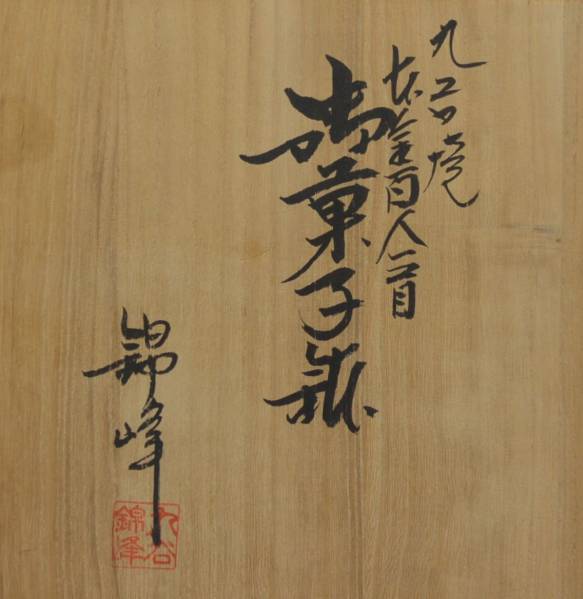 九谷焼
本金百人一首
御菓子鉢
錦峰
九谷
錦峰